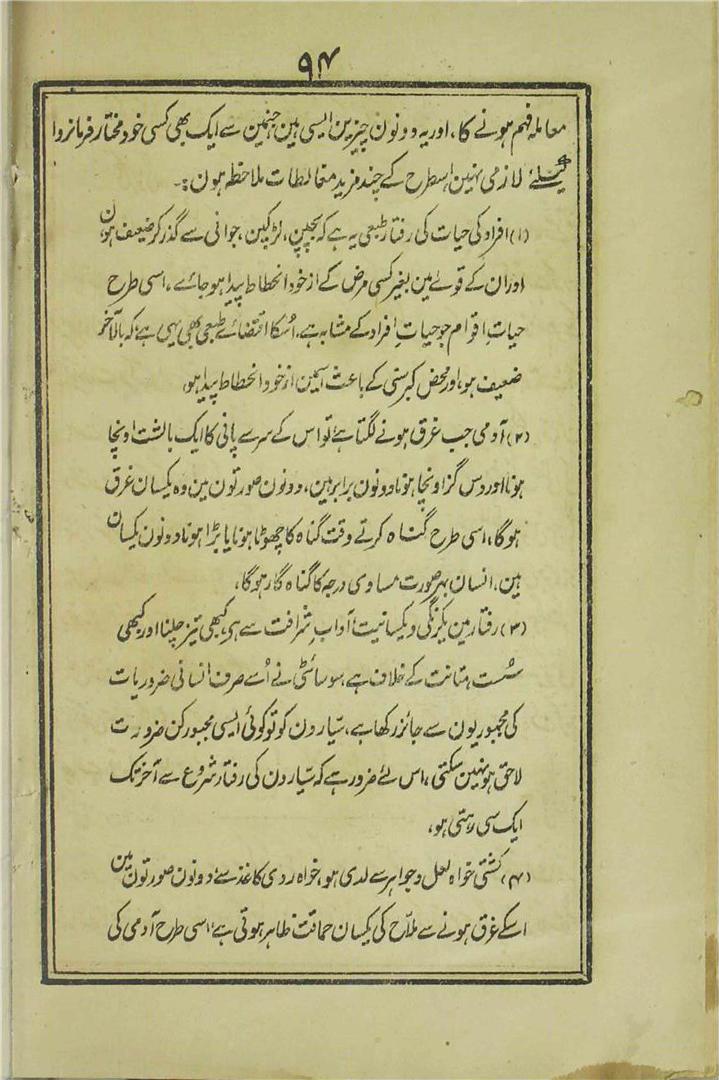 ۹۴
معاملہ فہم ہونے کا، اور یہ دونون چیزین ایسی ہین جنمین سے ایک بھی کسی خود مختار فرمانروا
کیلئے لازمی نہین اسطرح کے چند مزید مغالطات ملاحظہ ہون :۔
(۱) افراد کی حیات کی رفتار طبعی یہ ہے کہ بچپن، لڑکپن، جوانی سے گذر کر ضعیف ہون
اور ان کے قوےٰ مین بغیر کسی مرض کے از خود انحطاط پیدا ہو جائے، اسی طرح
حیاتِ اقوام جو حیاتِ افراد کے مشابہ ہے، اسکا اقتضائے طبعی بھی یہی ہے، کہ بالآخر
ضعیف ہو، اور محض کبر سنی کے باعث اسمین از خود انحطاط پیدا ہو،
(۲) آدمی جب غرق ہونے لگتا ہے تو اس کے سر سے پانی کا ایک بالشت اونچا
ہونا اور دس گز اونچا ہونا دونون برابر ہین، دونون صورتون مین وہ یکسان غرق
ہوگا، اسی طرح گناہ کرتے وقت گناہ کا چھوٹا ہونا یا بڑا ہونا دونون یکسان
ہین، انسان بہر صورت مساوی درجہ کا گناہ گار ہوگا،
(۳) رفتار مین یکرنگی و یکسانیت آدابِ شرافت سے ہی، کبھی تیز چلنا اور کبھی
سُست متانت کے خلاف ہے، سوسائٹی نے اُسے صرف انسانی ضروریات
کی مجبوریون سے جائز رکھا ہے، سیّارون کو تو کوئی ایسی مجبور کن ضرورت
لاحق ہو نہین سکتی، اس لئے ضرور ہے کہ سیّارون کی رفتار شروع سے آخر تک
ایک سی رہتی ہو،
(۴) کشتی خواہ لعل و جواہر سے لدی ہو، خواہ ردی کاغذ سے دونون صورتون مین
اسکے غرق ہونے سے ملّاح کی یکسان حماقت ظاہر ہوتی ہے، اسی طرح آدمی کی